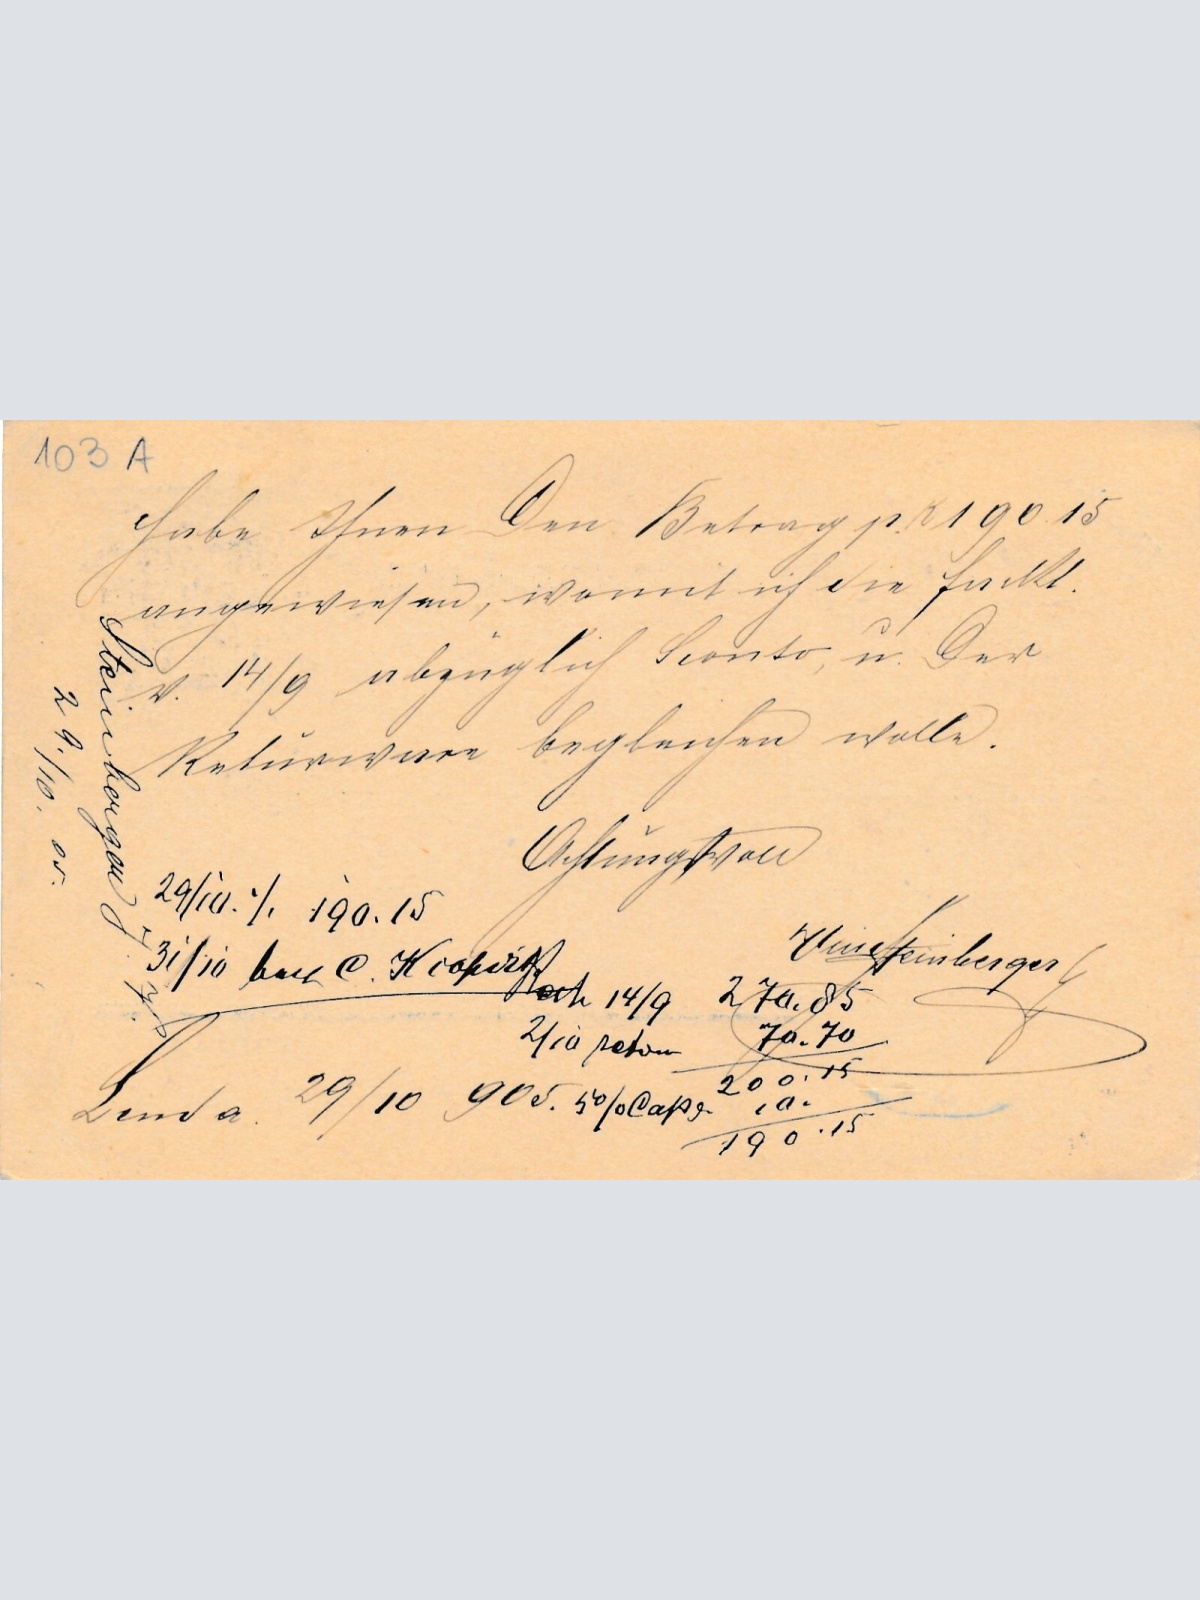 103 A
Habe Ihnen den Betrag p. K 190 15
angewiesen, womit ich die Fackt.
v. 14/9 abzüglich Sconto, u. der
Returware begleichen wolle.
Achtungsvoll
Steinberger
29/10. 05.
29/10. ·/. 190.15
31/10
14/9 270.85
2/10 retour 70.70
200.15
5%
10.
190.15
29/10 905.